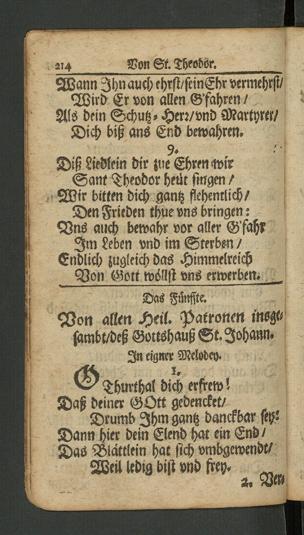 214 Von St. Theodor.
Wann Ihn auch ehrst / sein Ehr vermehrst /
Wird Er von allen G'fahren /
Als dein Schutz-Herr / vnd Martyrer /
Dich biß ans End bewahren.
9.
Diß Liedlein dir zue Ehren wir
Sant Theodor heüt singen /
Wir bitten dich gantz flehentlich /
Den Frieden thue vns bringen:
Vns auch bewahr vor aller G'fahr
Im Leben vnd im Sterben /
Endlich zugleich das Himmelreich
Von Gott wöllst vns erwerben.
Das Fünffte.
Von allen Heil. Patronen insge-
sambt / deß Gottshauß St. Johann.
In eigner Melodey.
1.
O Thurthal dich erfrew!
Daß deiner GOtt gedencket /
Drumb Ihm gantz danckbar sey:
Dann hier dein Elend hat ein End /
Das Blättlein hat sich vmbgewendt /
Weil ledig bist vnd frey.
2. Ver-